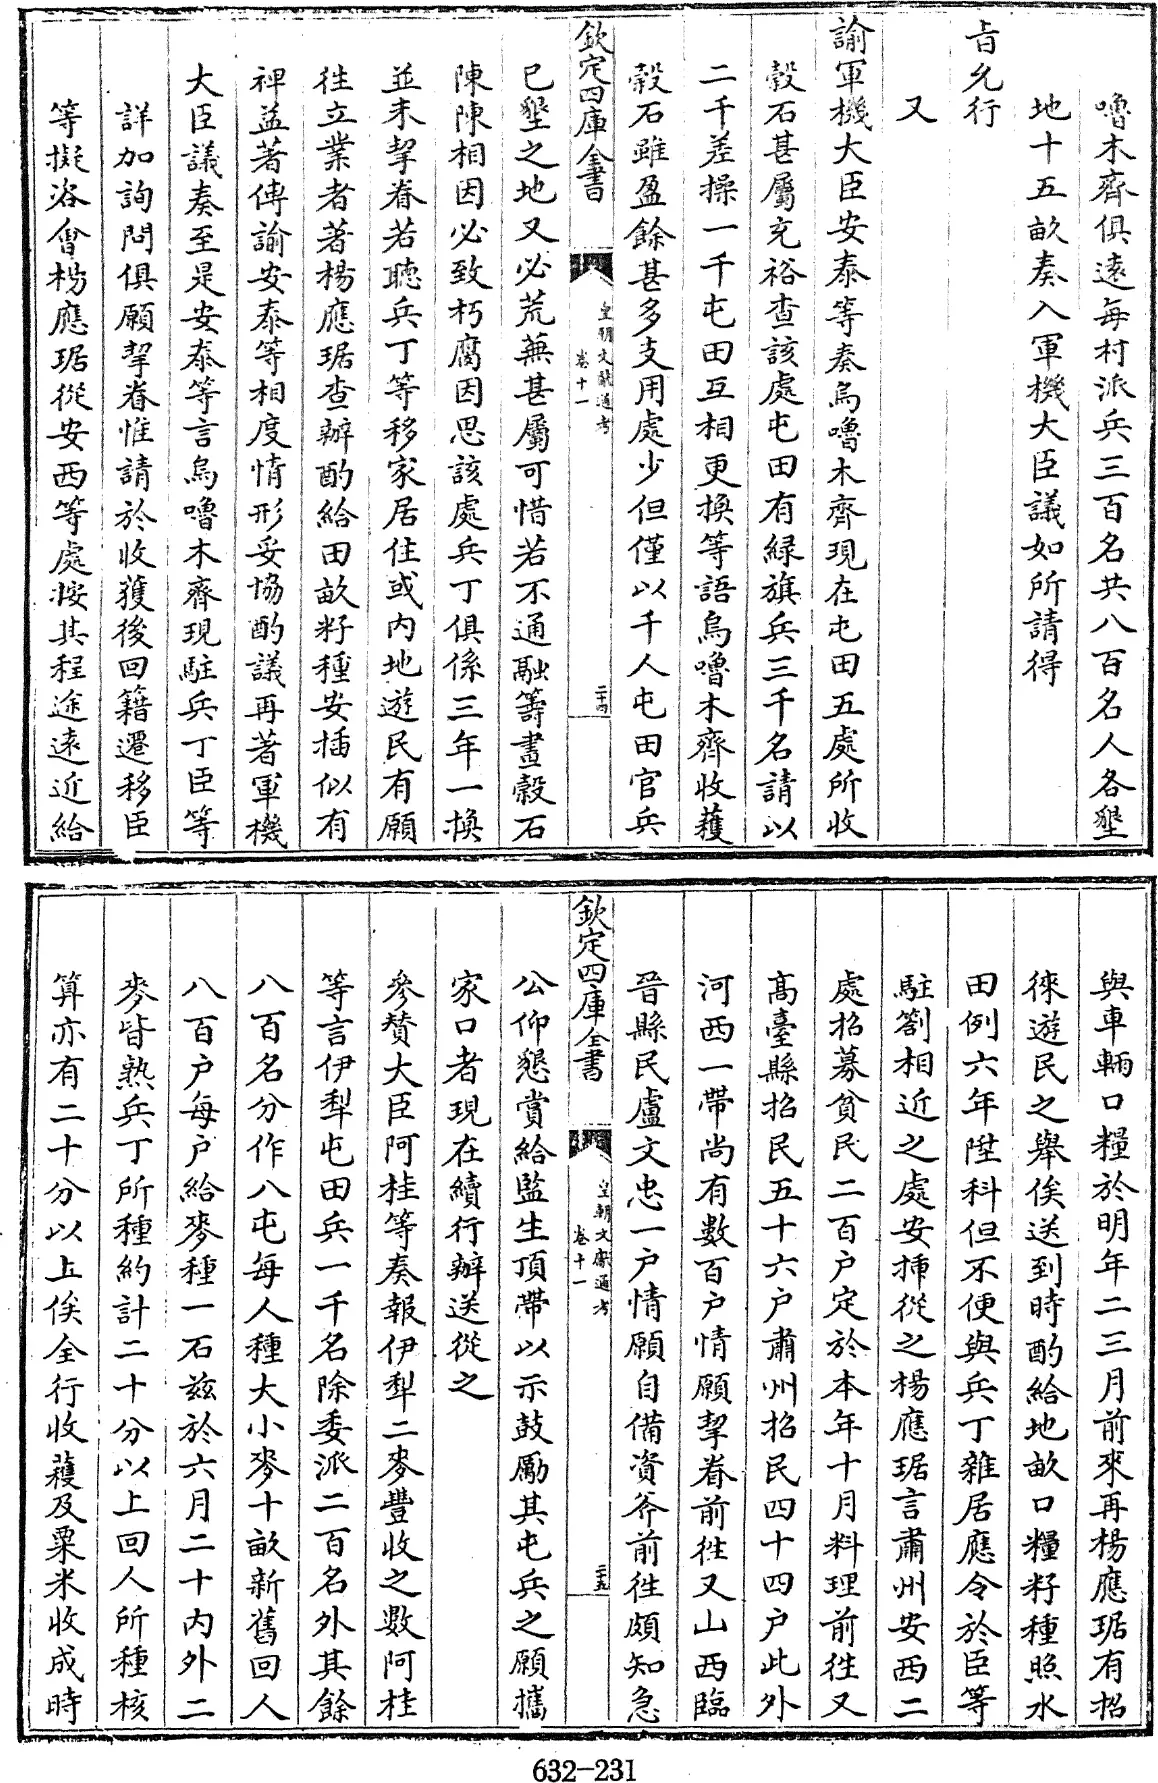 嚕木齊俱遠每村派兵三百名共八百名人各墾
地十五畝奏入軍機大臣議如所請得
㫖允行
又
諭軍機大臣安泰等奏烏嚕木齊現在屯田五處所收
穀石甚屬充裕查該處屯田有緑旗兵三千名請以
二千差操一千屯田互相更換等語烏嚕木齊收穫
穀石雖盈餘甚多支用處少但僅以千人屯田官兵
欽定四庫全書
皇朝文獻通考
卷十一
二十四
已墾之地又必荒蕪甚屬可惜若不通融籌畫穀石
陳陳相因必致朽腐因思該處兵丁俱係三年一換
並未挈眷若聽兵丁等移家居住或内地遊民有願
往立業者著楊應琚查辦酌給田畝籽種安插似有
禆益著傳諭安泰等相度情形妥協酌議再著軍機
大臣議奏至是安泰等言烏嚕木齊現駐兵丁臣等
詳加詢問俱願挈眷惟請於收獲後回籍遷移臣
等擬洛會楊應琚從安西等處按其程途逺近給
與車輛口糧於明年二三月前來再楊應琚有招
徠遊民之舉俟送到時酌給地畝口糧籽種照水
田例六年陞科但不便與兵丁雜居應令於臣等
駐劄相近之處安揷從之楊應琚言肅州安西二
處招募貧民二百户定於本年十月料理前徃又
髙臺縣招民五十六户肅州招民四十四户此外
河西一帶尚有數百户情願挈眷前徃又山西臨
晉縣民盧文忠一户情願自備資斧前徃頗知急
欽定四庫全書
皇朝文獻通考
卷十一
二十五
公仰懇賞給監生頂帶以示鼓勵其屯兵之願攜
家口者現在續行辦送從之
參贊大臣阿桂等奏報伊犁二麥豐收之數阿桂
等言伊犁屯田兵一千名除委派二百名外其餘
八百名分作八屯每人種大小麥十畝新舊回人
八百户每户給麥種一石茲於六月二十内外二
麥皆熟兵丁所種約計二十分以上回人所種核
算亦有二十分以上俟全行收穫及粟米收成時
632-231